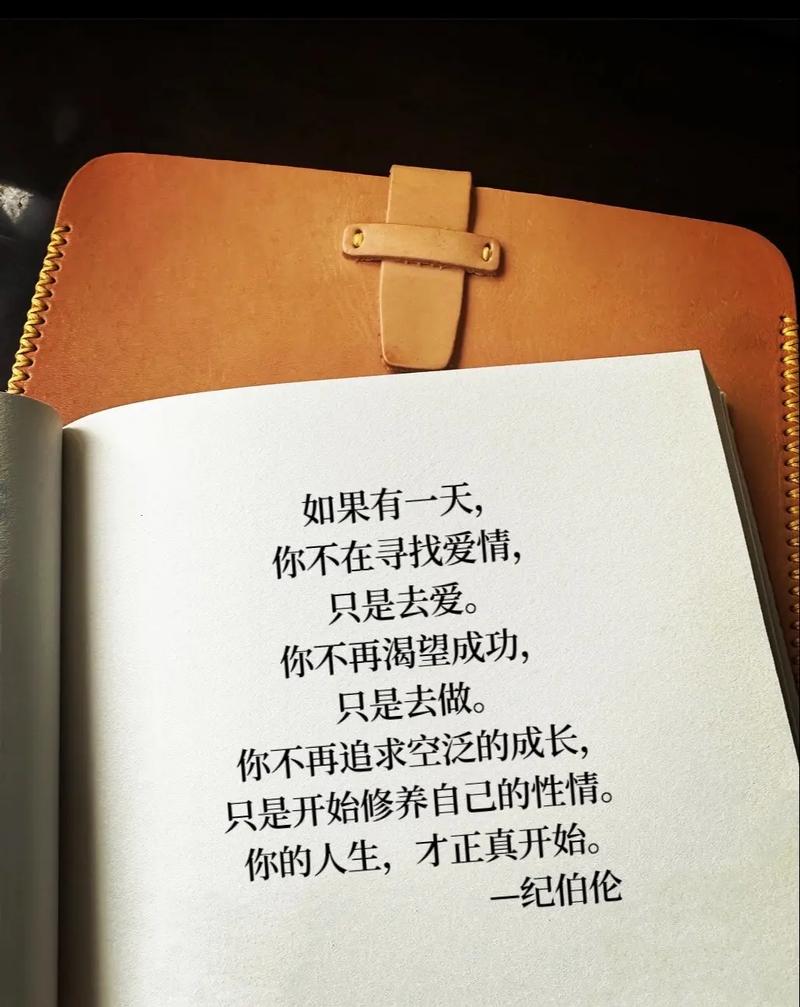 如果有一天，
你不在寻找爱情，
只是去爱。
你不再渴望成功，
只是去做。
你不再追求空泛的成长，
只是开始修养自己的性情。
你的人生，才正真开始。
—纪伯伦